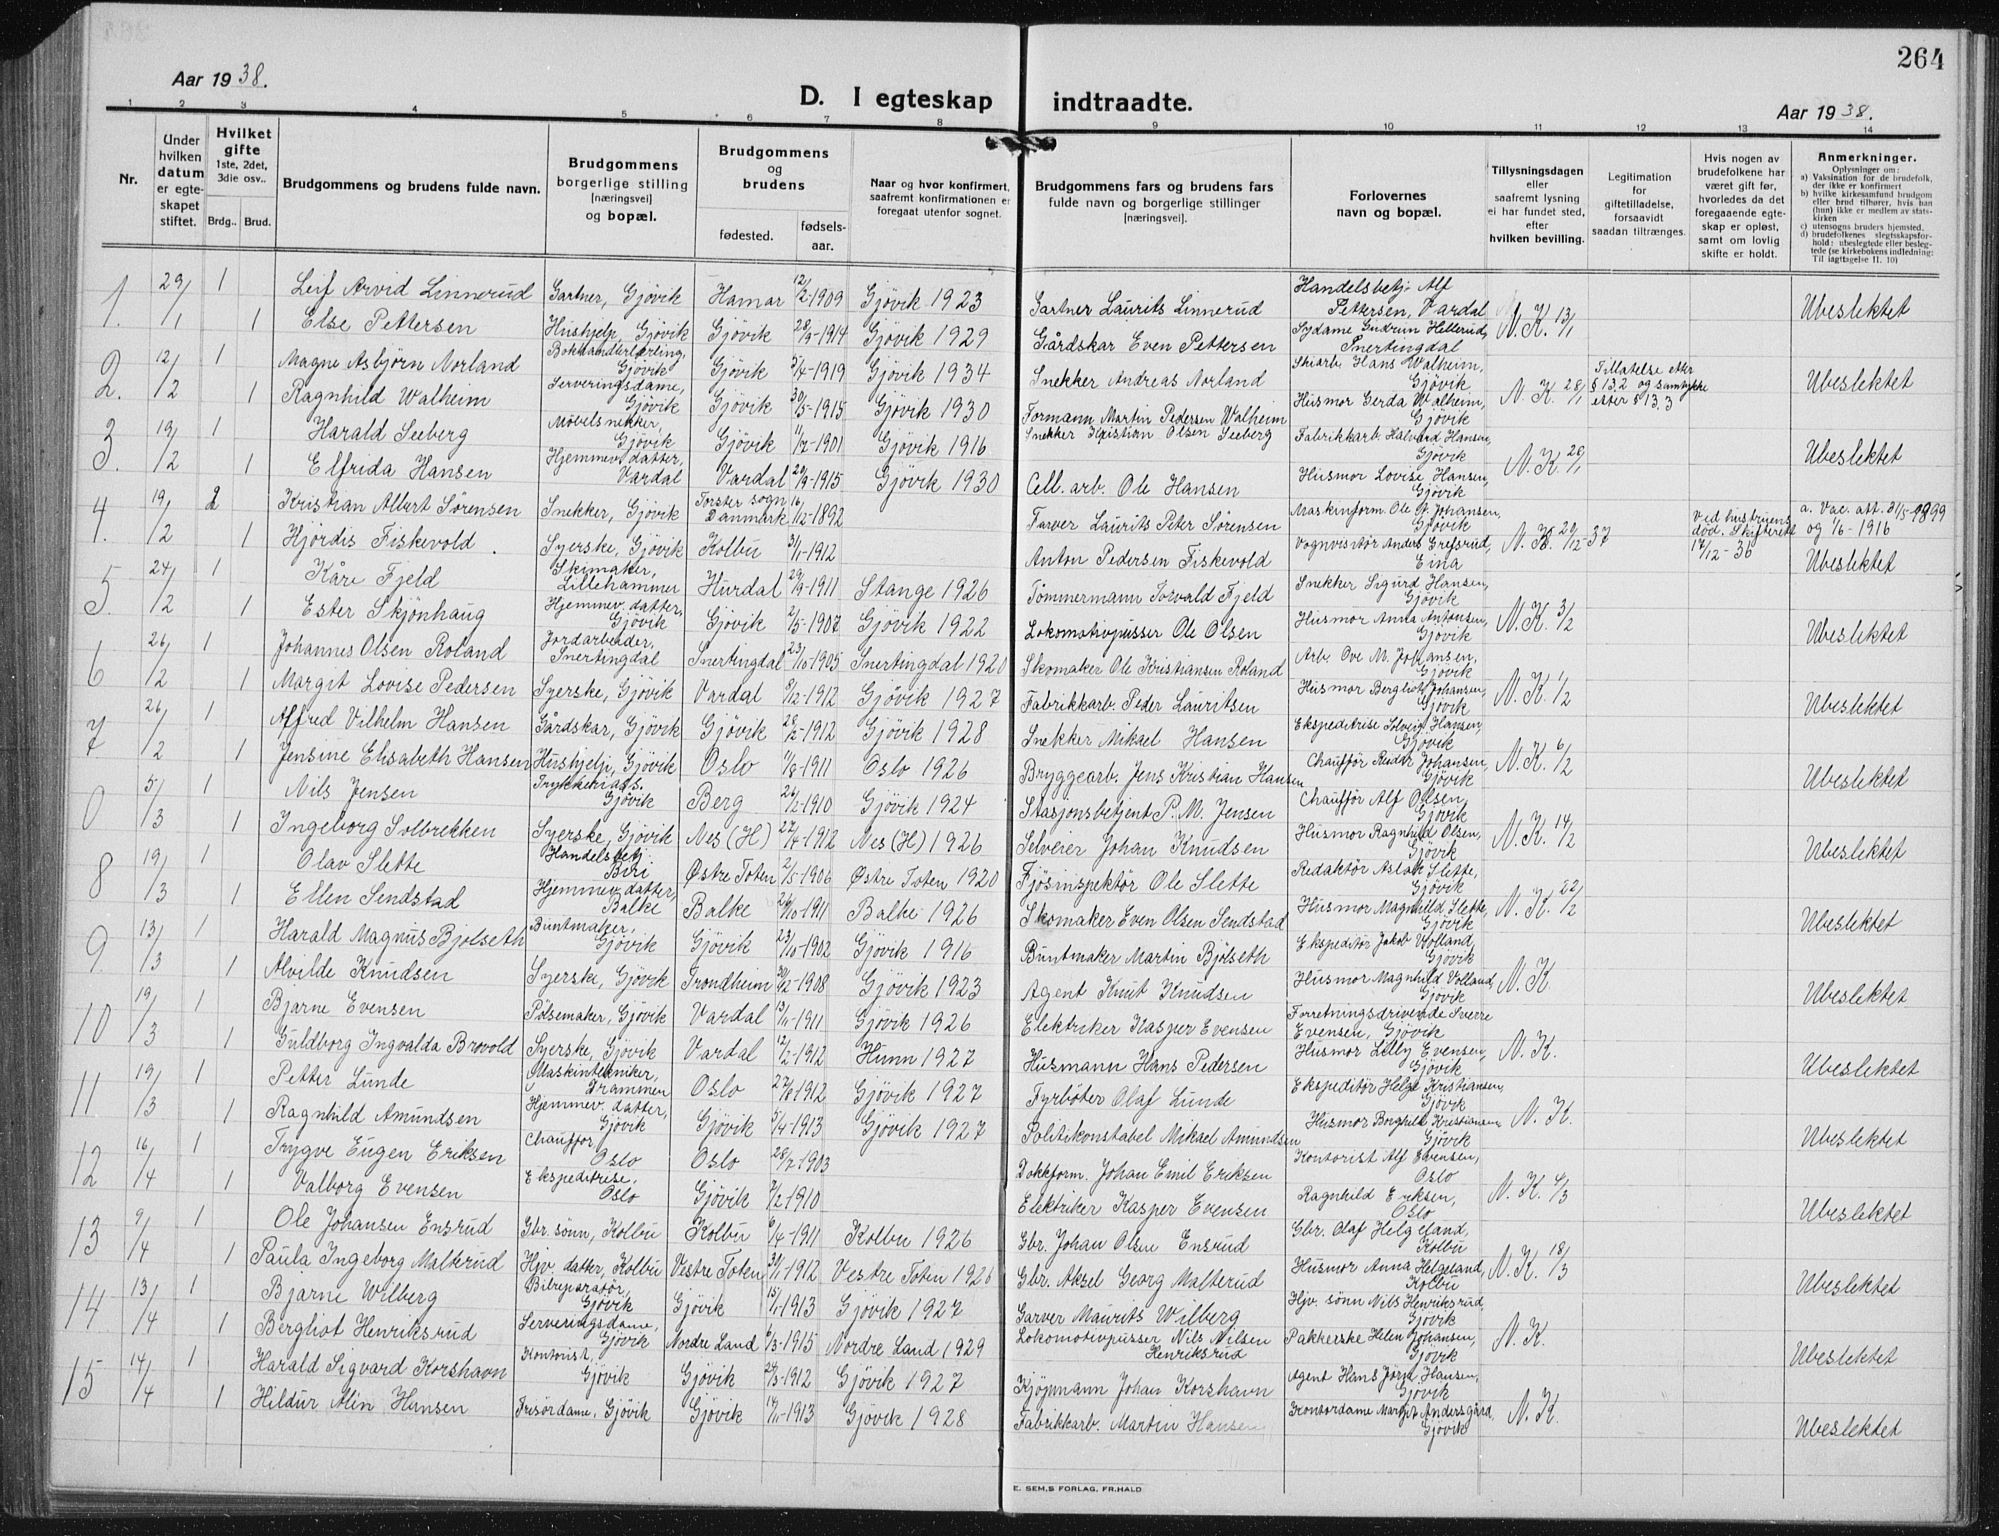 264
Aar 1938.
D. I egteskap indtraadte.
Aar 1938.
1 2 3 4 5 6 7 8 9 10 11 12 13 14
Nr.
Under hvilken datum er egte- skapet stiftet.
Hvilket gifte 1ste, 2det, 3die osv..
Brdg.. Brud.
Brudgommens og brudens fulde navn.
Brudgommens borgerlige stilling [næringsvei] og bopæl.
Brudgommens og brudens
fødested. fødsels- aar.
Naar og hvor konfirmert, saafremt konfirmationen er foregaat utenfor sognet.
Brudgommens fars og brudens fars fulde navn og borgerlige stillinger [næringsvei].
Forlovernes navn og bopæl.
Tillysningsdagen eller saafremt lysning ei har fundet sted, efter hvilken bevilling.
Legitimation for giftetilladelse, forsaavidt saadan tiltrænges.
Hvis nogen av brudefolkene har været gift før, hvorledes da det foregaaende egte- skap er opløst, samt om lovlig skifte er holdt.
Anmerkninger.
Oplysninger om:
a) Vaksination for de brudefolk, der ikke er konfirmert
b) hvilke kirkesamfund brudgom eller brud tilhører, hvis han (hun) ikke er medlem av stats- kirken
c) utensogns bruders hjemsted.
d) brudefolkenes slegtsskapsfor- hold: ubeslegtede eller beslegtede (se kirkebokens indledning: Til iagttagelse II. 10)
1. 29/1 1 Leif Arvid Linnerud Gartner, Gjövik Hamar 12/2-1909 Gjövik 1923 Gartner Laurits Linnerud Handelsbetj. Alf Pettersen, Vardal N.K. 13/1 Ubeslektet
1 Else Pettersen Hushjelp, Gjövik Gjövik 1914 Gjövik 1929 Gårdskar Even Pettersen Sydame Gudrun Hellerud, Snertingdal
2. 12/2 1 Magne Asbjörn Norland Bokhandlerlærling, Gjövik Gjövik 5/4-1919 Gjövik 1934 Snekker Andreas Norland Skiarb. Hans Walheim, Gjövik N.K. 28/1 Tillatelse etter § 13,2 og samtykke etter § 13,3 Ubeslektet
1 Ragnhild Walheim Serveringsdame, Gjövik Gjövik 30/5-1915 Gjövik 1930 Formann Martin Pedersen Walheim Husmor Gerda Walheim, Gjövik
3. 19/2 1 Harald Seeberg Møbelsnekker, Gjövik Gjövik 11/7-1901 Gjövik 1916 Snekker Kristian Olsen Seeberg Fabrikkarb. Halvard Hansen, Gjövik N.K. Ubeslektet
1 Elfrida Hansen Hjemmev. datter, Vardal Vardal 1915 Gjövik 1930 Cell. arb. Ole Hansen Husmor Lovise Hansen, Gjövik
4. 19/2 2 Kristian Albert Sørensen Snekker, Gjövik Torster sogn Danmark 16/12-1892 Farver Laurits Peter Sørensen Maskinform. Ole Johansen, Gjövik N.K. 29/12-37 Ved hustruens död. Skifterett 17/12-36 a. Vac. att. 31/5-1899 og 1/6-1916 Ubeslektet
1 Hjördis Fiskevold Syerske, Gjövik Kolbu 3/1-1912 Anton Pedersen Fiskevold Vognvisitör Anders Grefsrud, Eina
5. 24/2 1 Kåre Fjeld Skimaker, Lillehammer Hurdal 29/9-1911 Stange 1926 Tömmermann Torvald Fjeld Snekker Sigurd Hansen, Gjövik N.K. 3/2 Ubeslektet
1 Ester Skjönhaug Hjemmev. datter, Gjövik Gjövik 2/5-1907 Gjövik 1922 Lokomotivpusser Ole Olsen Husmor Anna Antonsen, Gjövik
6 26/2 1 Johannes Olsen Roland Jordarbeider, Snertingdal Snertingdal 23/10-1905 Snertingdal 1920 Skomaker Ole Kristiansen Roland Arb. Ove M. Johansen, Gjövik N.K. 1/2 Ubeslektet
1 Margit Lovise Pedersen Syerske, Gjövik Vardal 8/12-1912 Gjövik 1927 Fabrikkarb. Peder Lauritsen Husmor Bergliot Johansen, Gjövik
7 26/2 1 Alfred Vilhelm Hansen Gårdskar, Gjövik Gjövik 28/2-1912 Gjövik 1928 Snekker Mikael Hansen Ekspeditrise Solveig Hansen, Gjövik N.K. 6/2 Ubeslektet
1 Jensine Elisabeth Hansen Hushjelp, Gjövik Oslo 1/8-1911 Oslo 1926 Bryggearb. Jens Kristian Hansen Chauffør Reidar Johansen, Gjövik
0 5/3 1 Nils Jensen Trykkeriass. Gjövik Berg 26/2-1910 Gjövik 1924 Stasjonsbetjent P. M. Jensen Chauffør Alf Olsen, Gjövik N.K. 14/2 Ubeslektet
1 Ingeborg Solbrekken Syerske, Gjövik Nes (H) 27/4-1912 Nes (H) 1926 Selveier Johan Knudsen Husmor Ragnhild Olsen, Gjövik
8 19/3 1 Olav Slette Handelsbetj. Biri Østre Toten 2/5-1906 Østre Toten 1920 Fjösinspektör Ole Slette Redaktør Aslak Slette, Gjövik N.K. 22/2 Ubeslektet
1 Ellen Sendstad Hjemmev. datter, Balke Balke 1911 Balke 1926 Skomaker Even Olsen Sendstad Husmor Magnhild Slette, Gjövik
9 13/3 1 Harald Magnus Bjølseth Buntmaker, Gjövik Gjövik 23/10-1902 Gjövik 1916 Buntmaker Martin Bjølseth Ekspeditör Jakob Volland, Gjövik N.K. Ubeslektet
1 Alvilde Knudsen Syerske, Gjövik Trondheim 30/12-1908 Gjövik 1923 Agent Knut Knudsen Husmor Magnhild Volland, Gjövik
10 19/3 1 Bjarne Evensen Pølsemaker, Gjövik Vardal 13/11-1911 Gjövik 1926 Elektriker Kasper Evensen Forretningsdrivende Sverre Evensen, Gjövik N.K. Ubeslektet
1 Guldborg Ingvalda Brovold Syerske, Gjövik Vardal 12/2-1912 Hunn 1927 Husmann Hans Pedersen Husmor Lilly Evensen, Gjövik
11 19/3 1 Petter Lunde Maskintekniker, Drammen Oslo 27/8-1912 Gjövik 1927 Fyrböter Olaf Lunde Ekspeditör Helge Kristiansen, Gjövik N.K. Ubeslektet
1 Ragnhild Amundsen Hjemmev. datter, Gjövik Gjövik 5/4-1913 Gjövik 1927 Politikonstabel Mikael Amundsen Husmor Borghild Kristiansen, Gjövik
12 16/4 1 Trygve Eugen Eriksen Chauffør Oslo Oslo 28/7-1903 Dokkform. Johan Emil Eriksen Kontorist Alf Evensen, Oslo N.K. 4/3 Ubeslektet
1 Valborg Evensen Ekspeditrise, Oslo Gjövik 7/2-1910 Elektriker Kasper Evensen Ragnhild Eriksen, Oslo
13 9/4 1 Ole Johansen Ensrud Gbr. sönn, Kolbu Kolbu 6/4-1911 Kolbu 1926 Gbr. Johan Olsen Ensrud Gbr. Olaf Helgeland, Kolbu N.K. 18/3 Ubeslektet
1 Paula Ingeborg Malterud Hjv. datter, Kolbu Vestre Toten 31/1-1912 Vestre Toten 1926 Gbr. Aksel Georg Malterud Husmor Anna Helgeland, Kolbu
14 13/4 1 Bjarne Wilberg Bilreparatør, Gjövik Gjövik 1913 Gjövik 1927 Garver Maurits Wilberg Hjv. sönn Nils Henriksrud, Gjövik N.K. Ubeslektet
1 Bergliot Henriksrud Serveringsdame, Gjövik Nordre Land 1915 Nordre Land 1929 Lokomotivpusser Nils Nilsen Henriksrud Pakkerske Helen Johansen, Gjövik
15 14/4 1 Harald Sigvard Korshavn Kontorist, Gjövik Gjövik 1912 Gjövik 1927 Kjöpmann Johan Korshavn Agent Hans Jörg. Hansen, Gjövik N.K. Ubeslektet
1 Hildur Alin Hansen Frisördame, Gjövik Gjövik 1913 Gjövik 1928 Fabrikkarb. Martin Hansen Kontordame Margit Andersgård, Gjövik
E. SEM,S FORLAG, FR.HALD